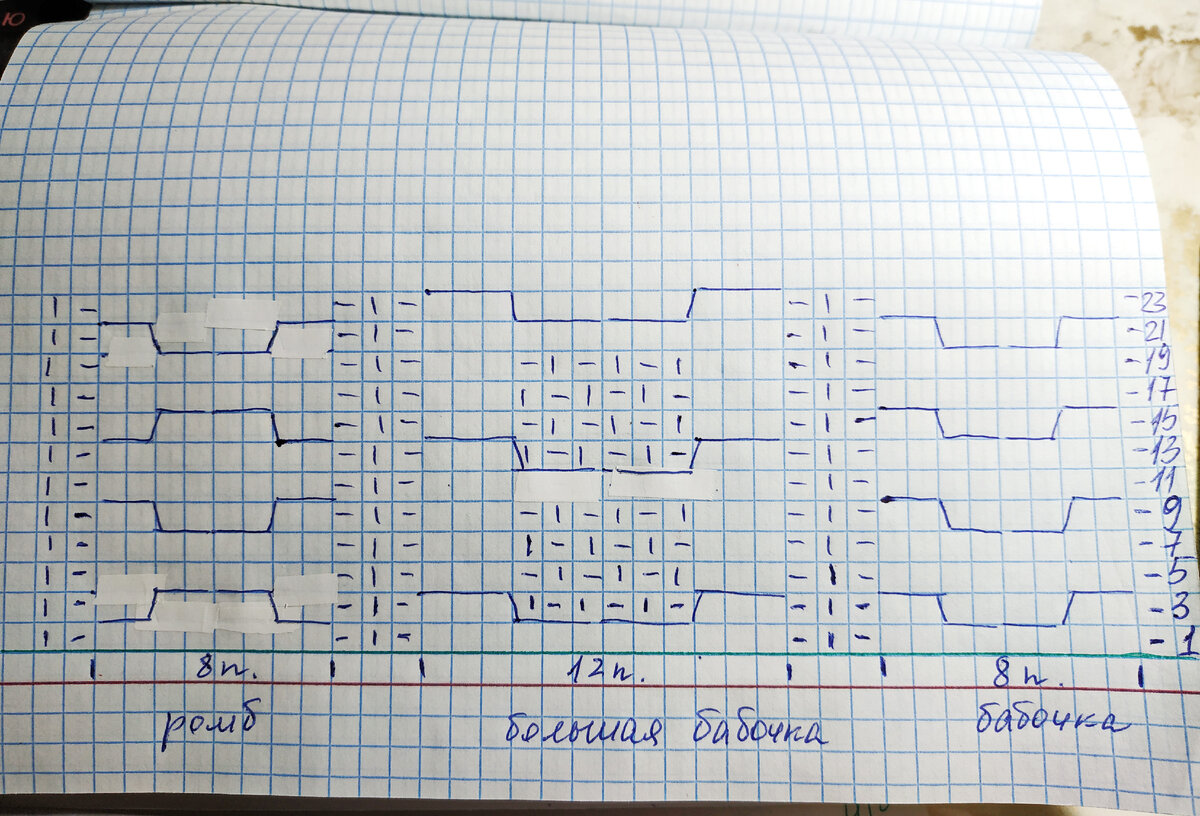 Ю
23
21
19
17
15
13
11
9
7
5
3
1
8п. 12п. 8п.
ромб большая бабочка бабочка